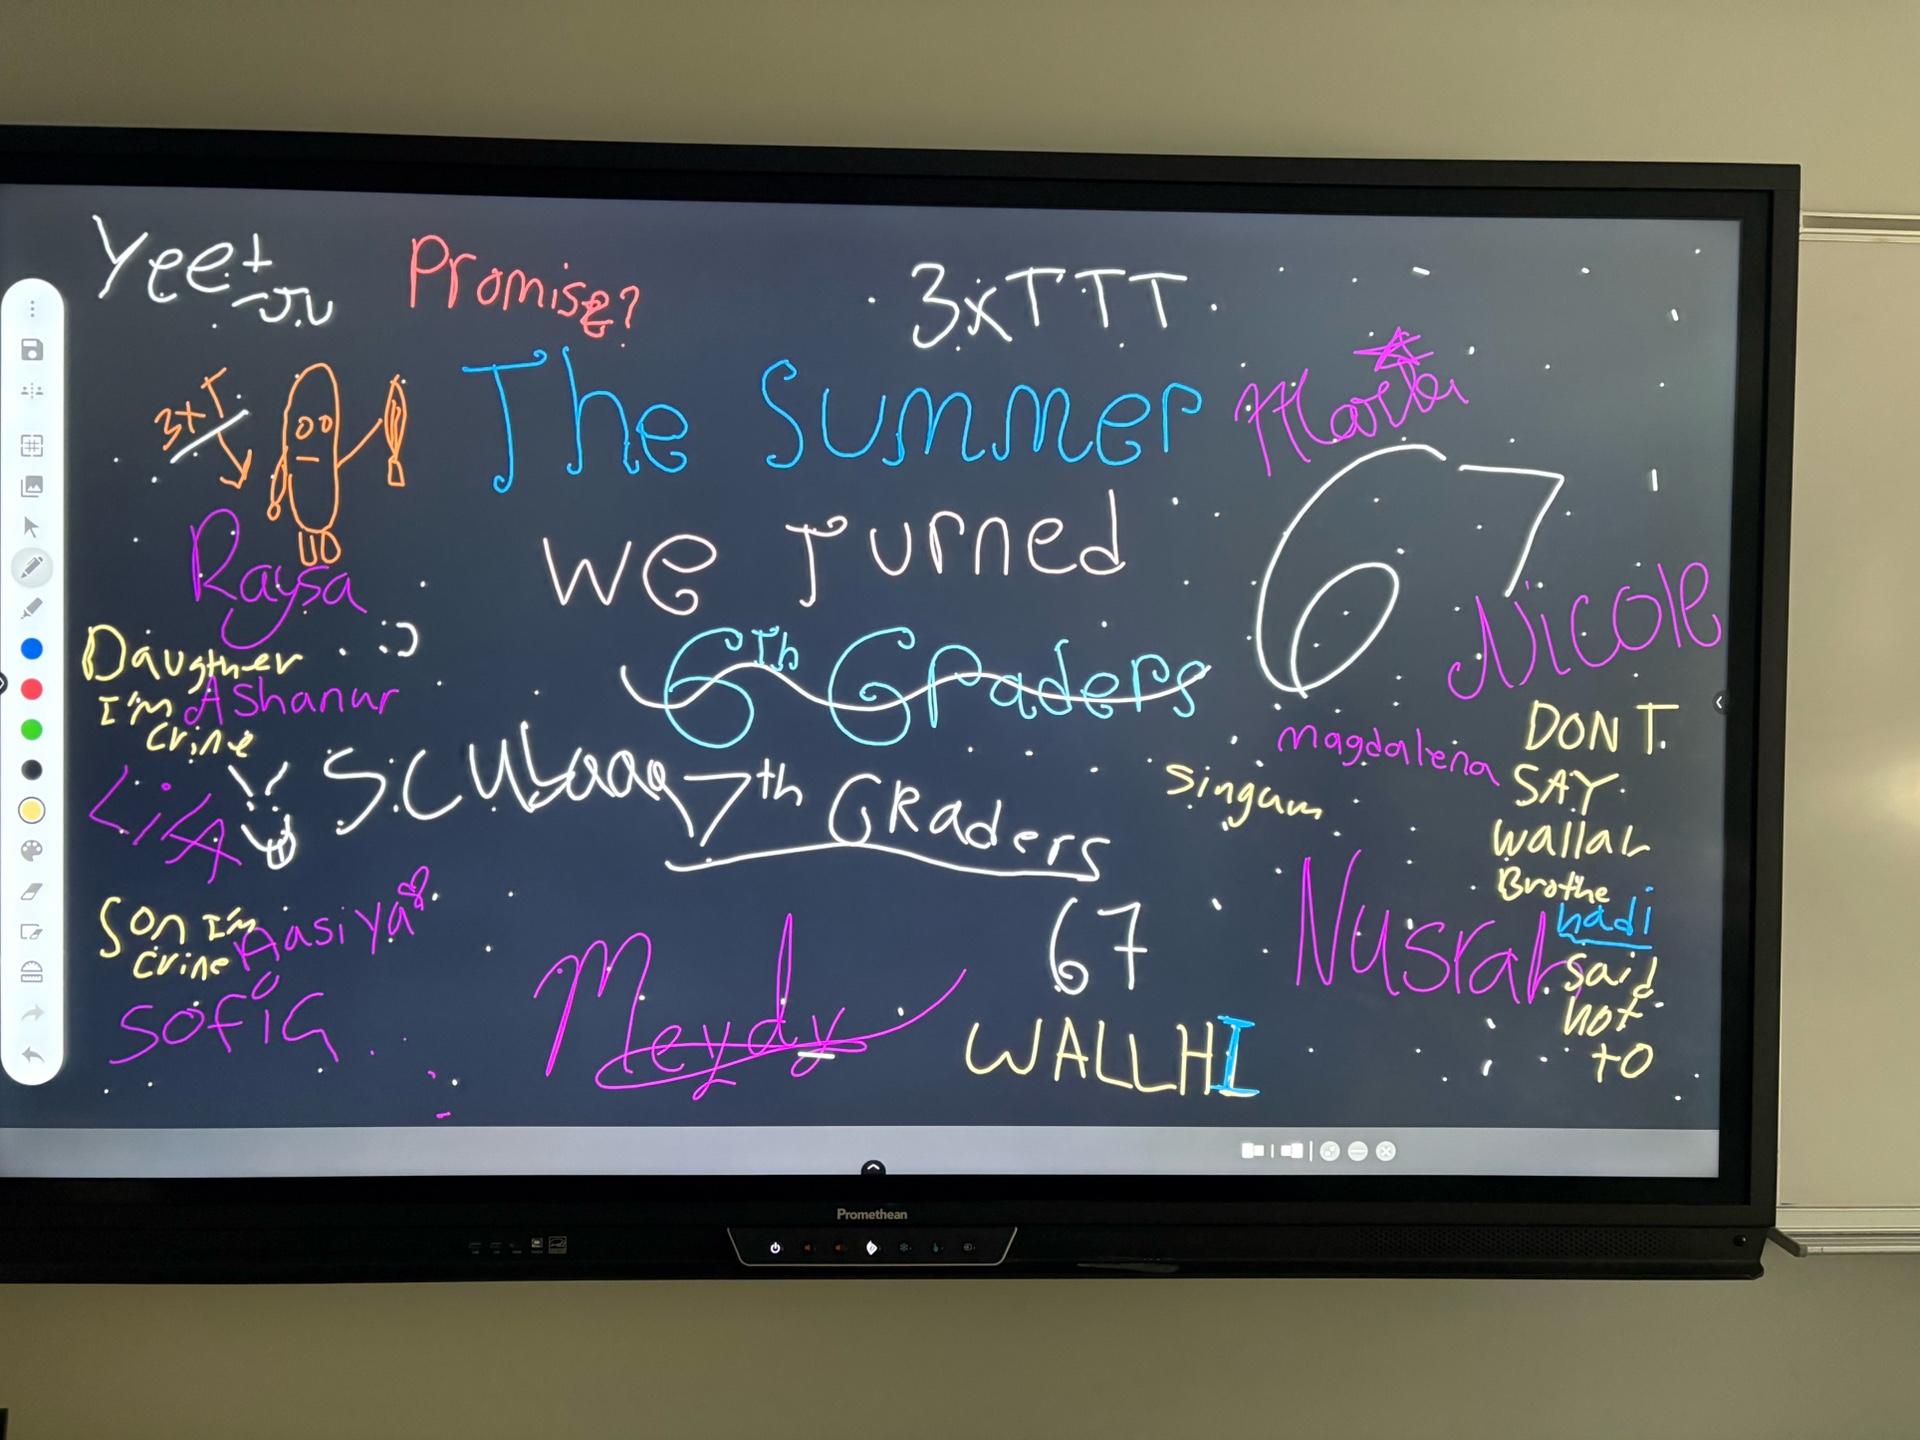 Yeet
-J.U
Promise?
3xTTT
3xT
The Summer
Maria
We Turned
67
Raysa
Nicole
:)
6th Graders
Daugther
I'm
Crine
Ashanur
magdalena
DONT
SAY
wallah
Brothe
hadi
said
not
to
Singum
7th GRaders
LilA
Son I'm
Crine
Aasiya
Sofia
Meydy
67
WALLHI
Nusrah
Promethean